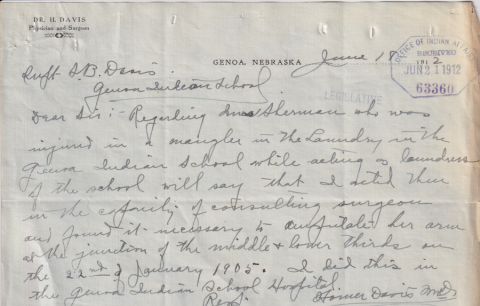 DR. H. DAVIS
Physician and Surgeon
GENOA, NEBRASKA
June 18 1912
OFFICE OF INDIAN AFFAIRS
RECEIVED
JUN 21 1912
63360
LEGISLATIVE
Supt S.B. Davis.
Genoa Indian School
Dear Sir:- Regarding Mrs Sherman who was
injured in a mangler in the Laundry in the
Genoa Indian School while acting as laundress
of the school will say that I acted then
in the capacity of consulting surgeon
and found it necessary to amputate her arm
at the junction of the middle & lower thirds on
the 22nd of January 1905. I did this in
the Genoa Indian School Hospital
Resp. Homer Davis M.D.